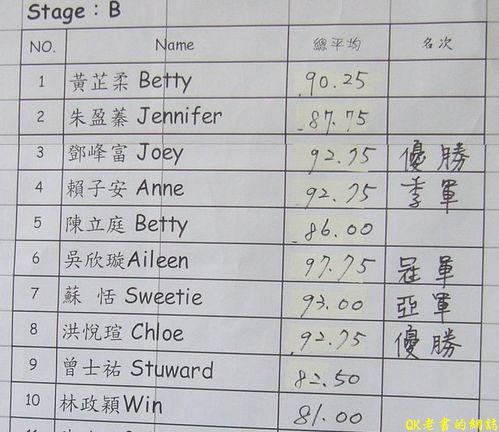 Stage : B
NO. Name 總平均 名次
1 黃芷柔 Betty 90.25
2 朱盈蓁 Jennifer 87.75
3 鄧峰富 Joey 92.75 優勝
4 賴子安 Anne 92.75 季軍
5 陳立庭 Betty 86.00
6 吳欣璇 Aileen 97.75 冠軍
7 蘇 恬 Sweetie 93.00 亞軍
8 洪悅瑄 Chloe 92.75 優勝
9 曾士祐 Stuward 82.50
10 林政穎 Win 81.00
QK老書的網誌